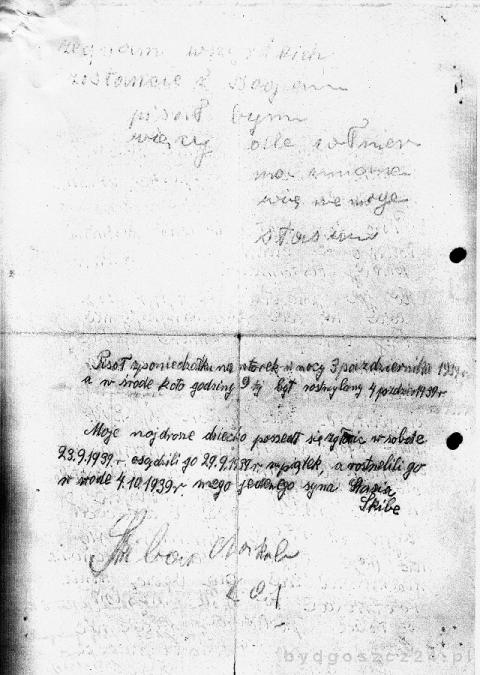 żegnam wszystkich
zostańcie z Bogiem
pisał bym
więcy ale żołnier
ma zmiane
więc nie moge
Stasiu
Pisał z poniedziałku na wtorek w nocy 3 października 1939 r
a w środe koło godziny 9 tej był rostrzylany 4 paździer 1939 r
Moje najdrosze dziecko poszedł się zgłosić w sobote
23.9.1939. r. osądzili go 29.9.1939 r. w piątek, a rostrzelili go
w środe 4.10.1939 r. mego jedenego syna Stasia
Skibe
Skiba
bydgoszcz24.pl